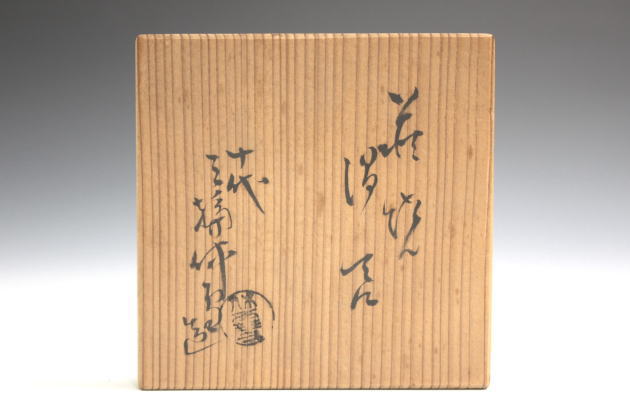 萩焼
湯呑
十代
三輪休雪造